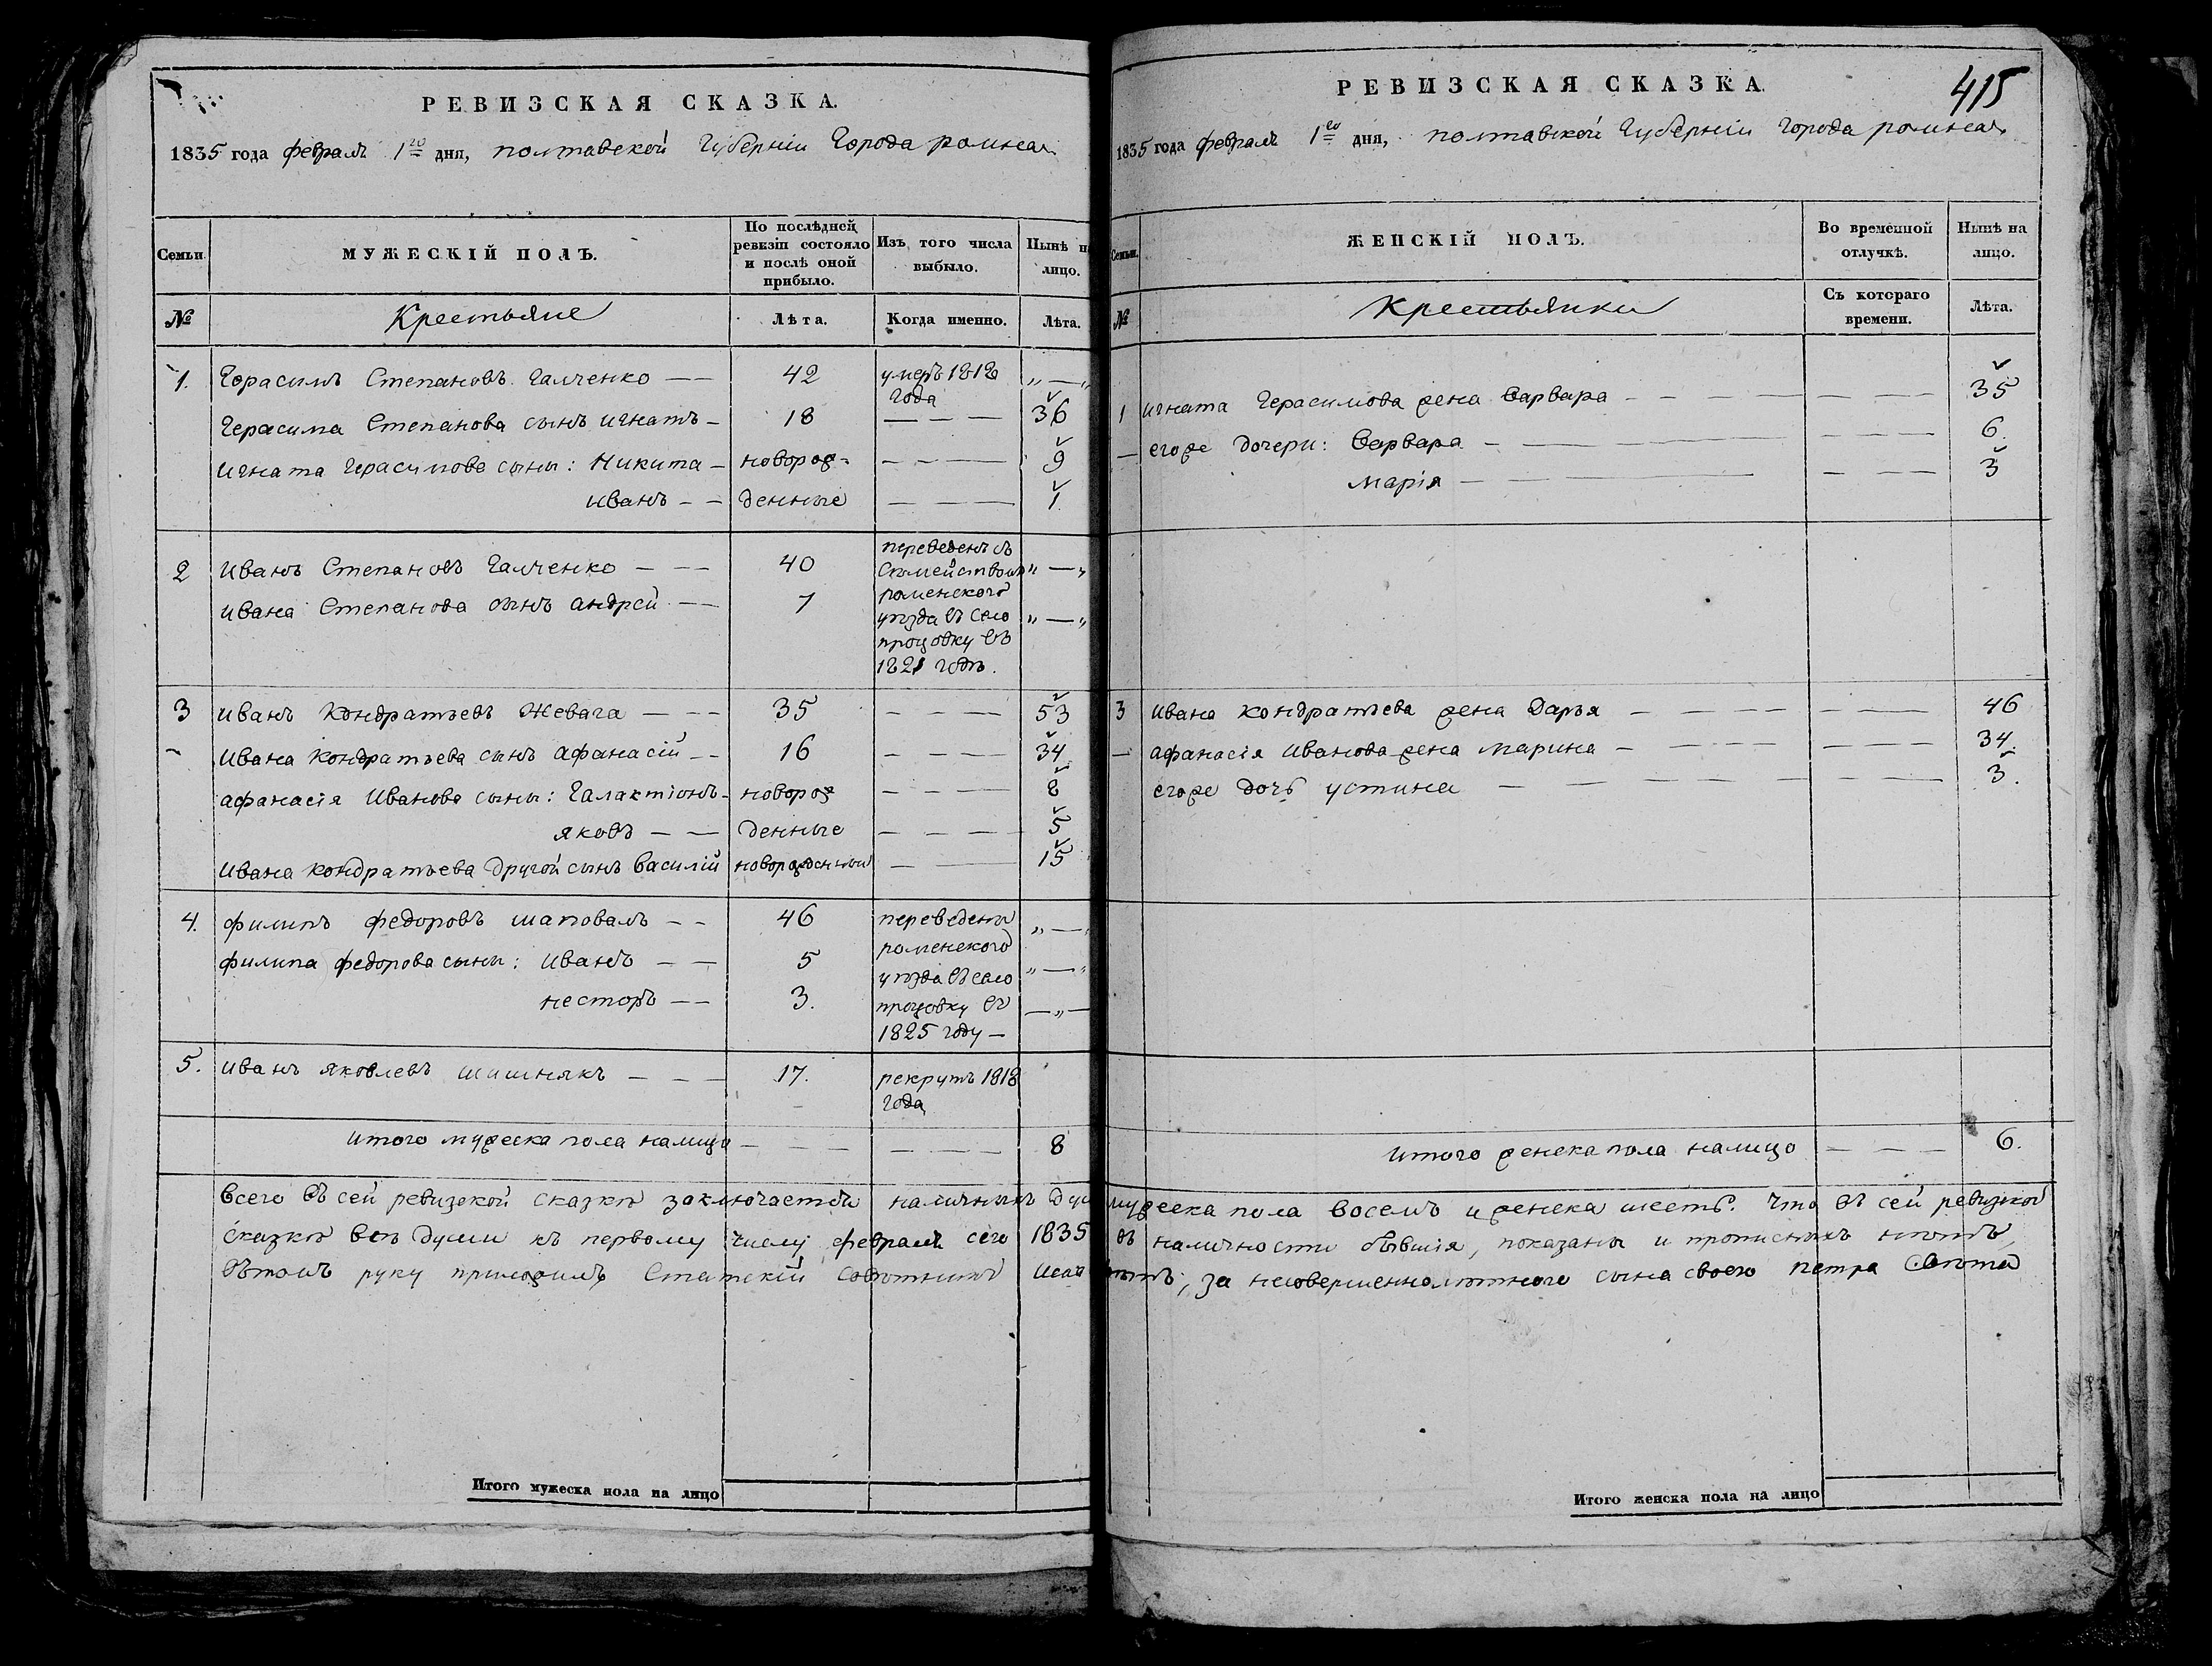 РЕВИЗСКАЯ СКАЗКА.
1835 года февраля 1го дня, полтавской Губерніи Города ромна
Семьи.
МУЖЕСКІЙ ПОЛЪ.
По послѣдней
ревизіи состояло
и послѣ оной
прибыло.
Изъ того числа
выбыло.
Нынѣ на
лицо.
№
Крестьяне
Лѣта.
Когда именно.
Лѣта.
1. Герасимъ Степановъ Галченко — — 42 умеръ 1818 года „ — „
Герасима Степанова сынъ игнатъ — 18 — — 36
игната Герасимова сыны: Никита — новорож- — — — 9
иванъ — — денные — — — 1
2 иванъ Степановъ Галченко — — — 40 переведенъ съ „ — „
Семействомъ
ивана Степанова сынъ андрей — — 7 роменского „ — „
уѣзда въ село
процовку въ
1821 годѣ.
3 иванъ Кондратьевъ Жевага — — — 35 — — — 53
ивана Кондратьева сынъ афанасій — — 16 — — — 34
афанасія Иванова сыны: Галактіонъ — новорож — — — 8
яковъ — — денные — — — 5
ивана кондратьева другой сынъ василій новорожденный — — 15
4. филипъ федоровъ шаповалъ — — 46 переведены „ — „
роменского
филипа федорова сыны: иванъ — — 5 уѣзда въ село „ — „
несторъ — — 3. процовку въ — „ —
1825 году —
5. иванъ яковлевъ шишнякъ — — — 17. рекрутъ 1818
года
итого мужеска пола налицо — — — — — — 8
всего въ сей ревизской сказкѣ заключается наличныхъ душ
сказкѣ всѣ души къ первому числу февраля сего 1835
въ томъ руку приложилъ Статскій Совѣтникъ
Итого мужеска пола на лицо
415
РЕВИЗСКАЯ СКАЗКА.
1835 года февраля 1го дня, полтавской Губерніи Города ромна
Семьи.
ЖЕНСКІЙ ПОЛЪ.
Во временной
отлучкѣ.
Нынѣ на
лицо.
№
Крестьянки
Съ котораго
времени.
Лѣта.
1 игната Герасимова жена варвара — — — — — 35
— егоже дочери: варвара — — — — — 6.
марія — — — — — 3
3 ивана кондратьева жена Дарья — — — — — — 46
— афанасія иванова жена марина — — — — — — 34.
егоже дочь устина — — — — — — 3.
итого женска пола налицо — — — 6.
мужеска пола восемъ и женска шесть. Что въ сей ревизкой
въ наличности бывшія, показаны и прописныхъ нѣтъ,
за несовершеннолѣтнего сына своего петра
Итого женска пола на лицо